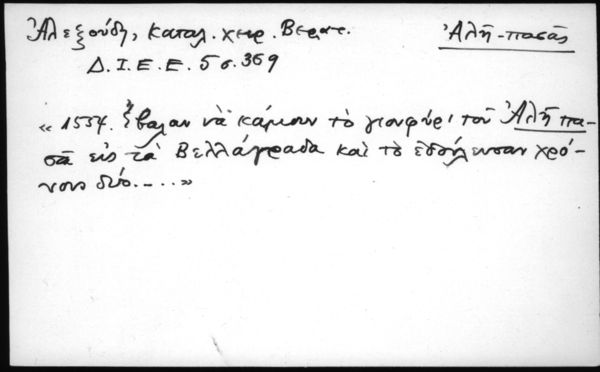 Ἀλεξούδη, Καταλ. χειρ. Βερατ. Ἀλῆ-πασᾶς
Δ.Ι.Ε.Ε. 5 σ. 369
« 1554. Ἔβαλαν νὰ κάμουν τὸ γιουφύρι τοῦ Ἀλῆ πα-
σᾶ εἰς τὰ Βελλάγραδα καὶ τὸ ἐδούλευσαν χρό-
νους δύο..... »